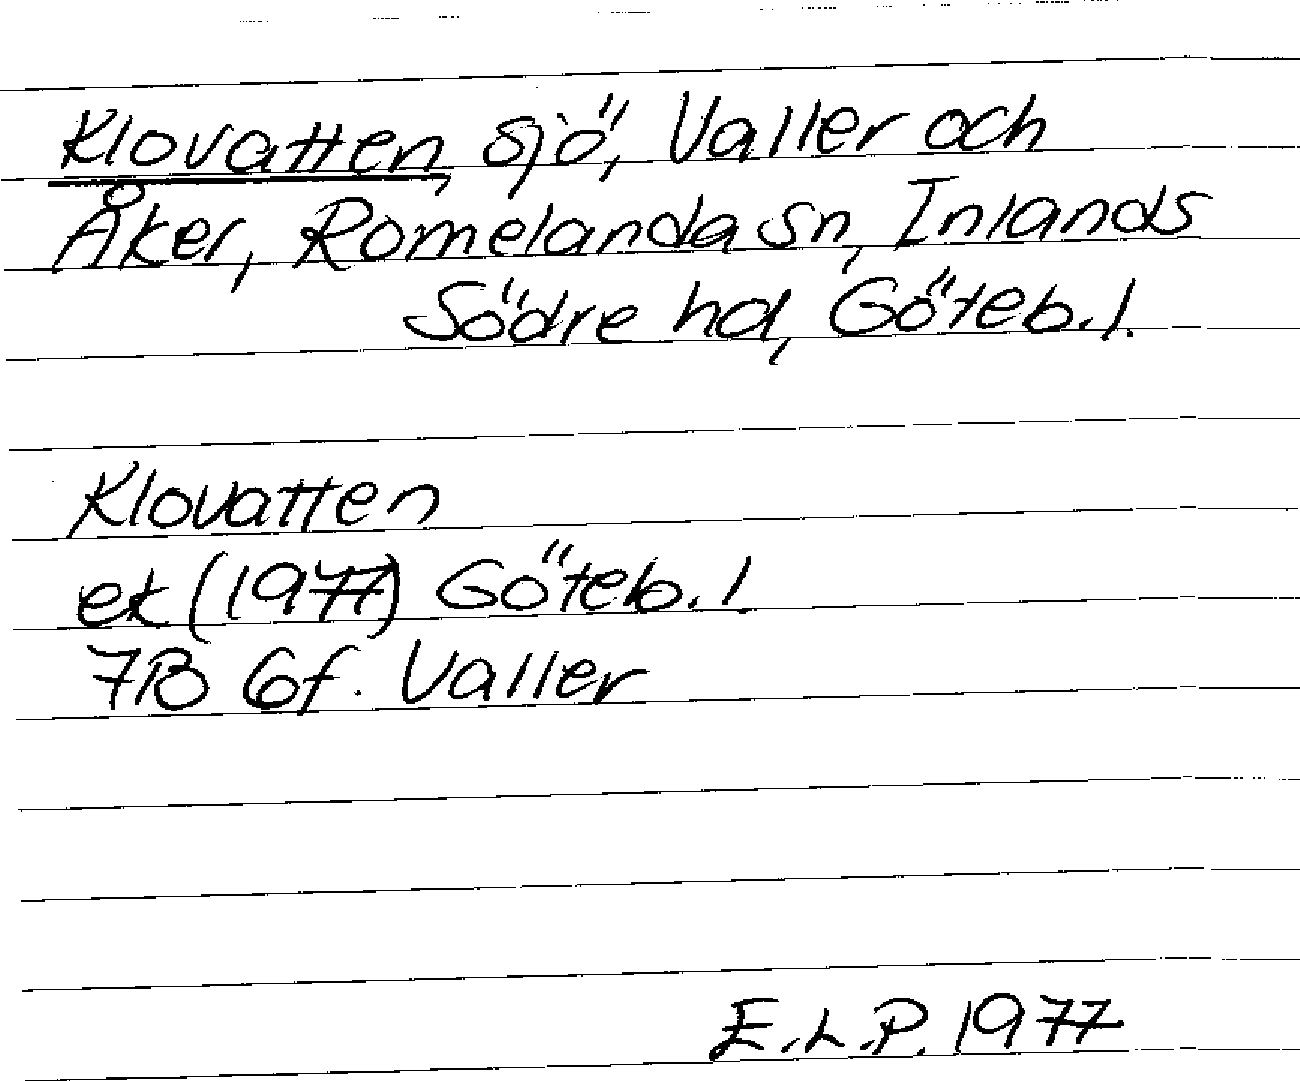 Klovatten, sjö, Valler och
Åker, Romelanda sn, Inlands
Södre hd, Göteb. l.
Klovatten
ek (1977) Göteb. l.
7B 6f. Valler
E.L.P. 1977